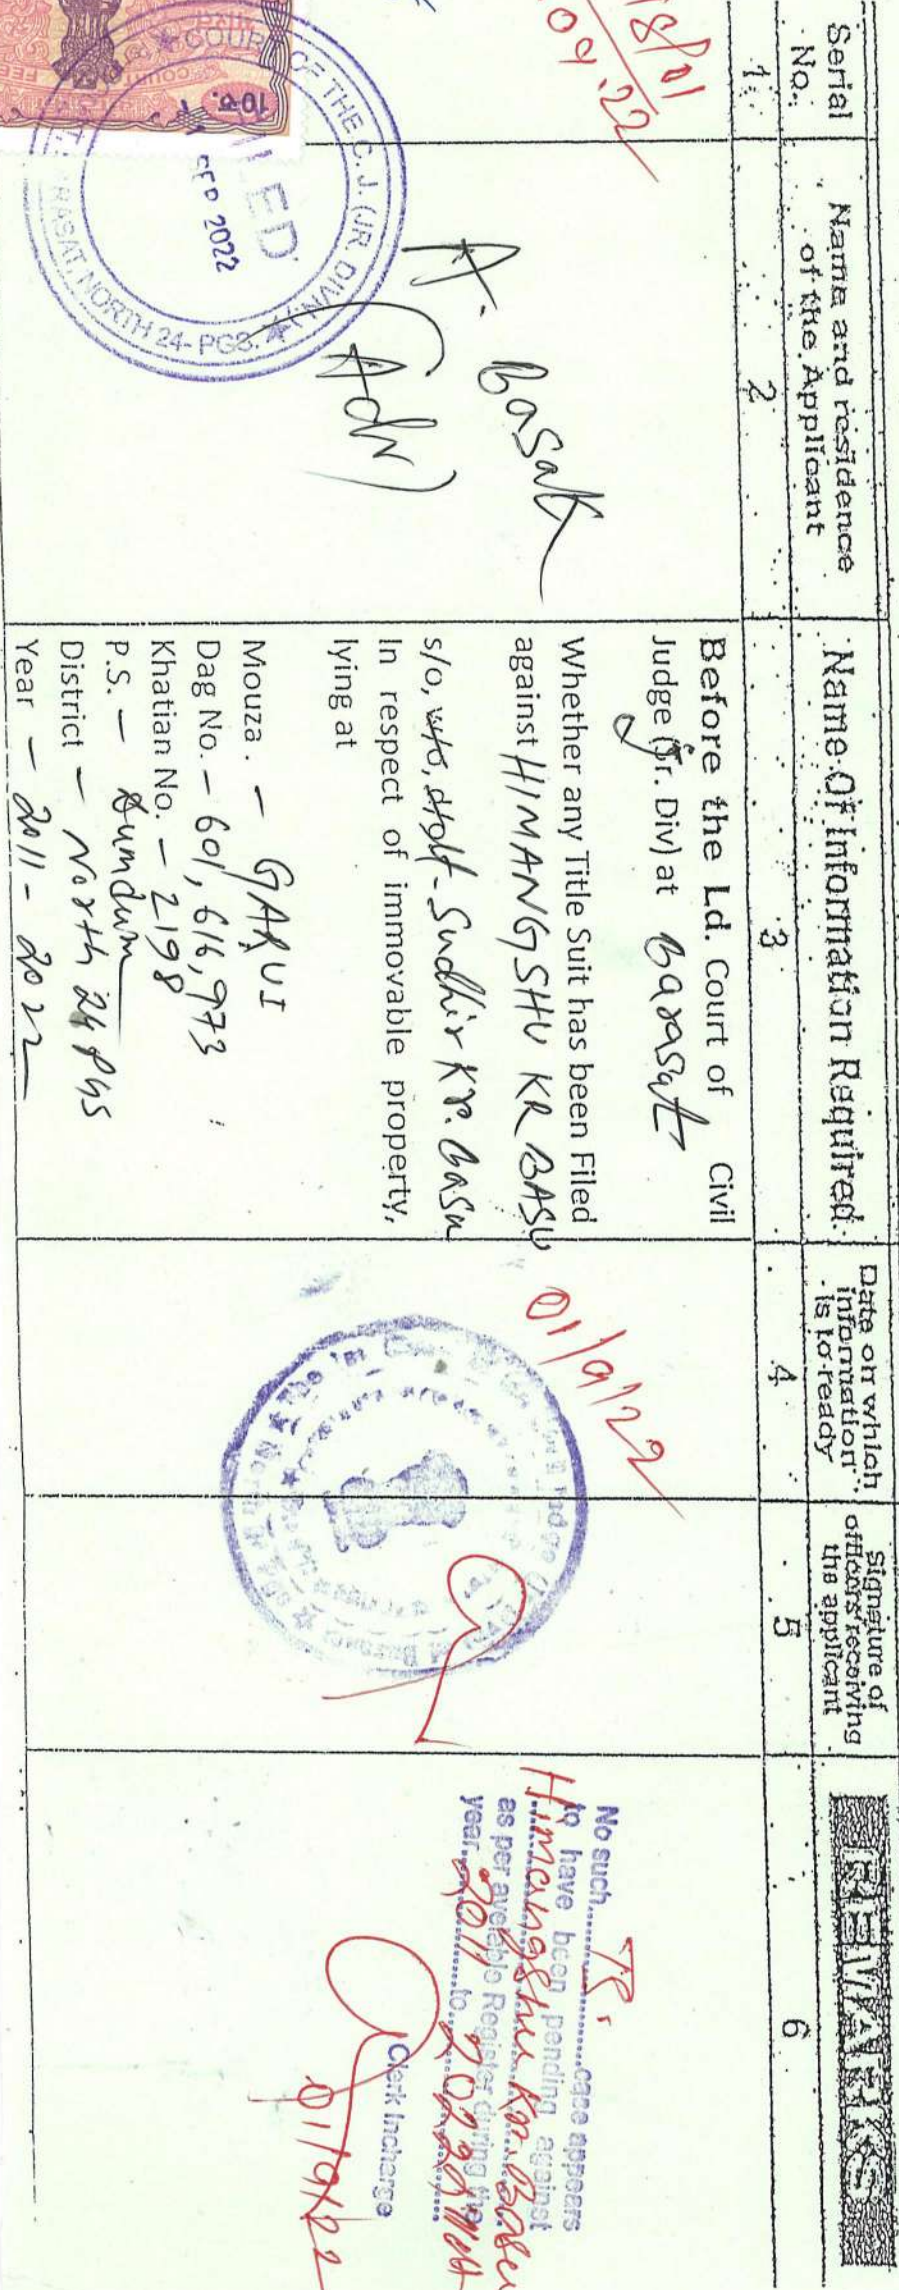 Serial No.
Name and residence of the Applicant
Name Of Information Required
Date on which information is to ready
Signature of officers receiving the applicant
REMARKS
1
2
3
4
5
6
18/01
09.22
A. Basak
(Adv)
10
COURT OF THE C.J. (JR. DIVN)
NORTH 24-PGS.
FILED
SEP 2022
Before the Ld. Court of Civil
Judge (Jr. Div) at Barasat
Whether any Title Suit has been Filed
against HIMANGSHU KR BASU
s/o, w/o, d/o Sudhir Kr. Basu
In respect of immovable property,
lying at
Mouza. - GARUI
Dag No. - 601, 616, 973
Khatian No. - 2198
P.S. - Dumdum
District - North 24 PGS
Year - 2011 - 2022
01/9/22
No such T.S. case appears
to have been pending against
Himangshu Kr. Basu
as per avelable Register during the
year 2011 to 2022
Clerk Incharge
01/9/22